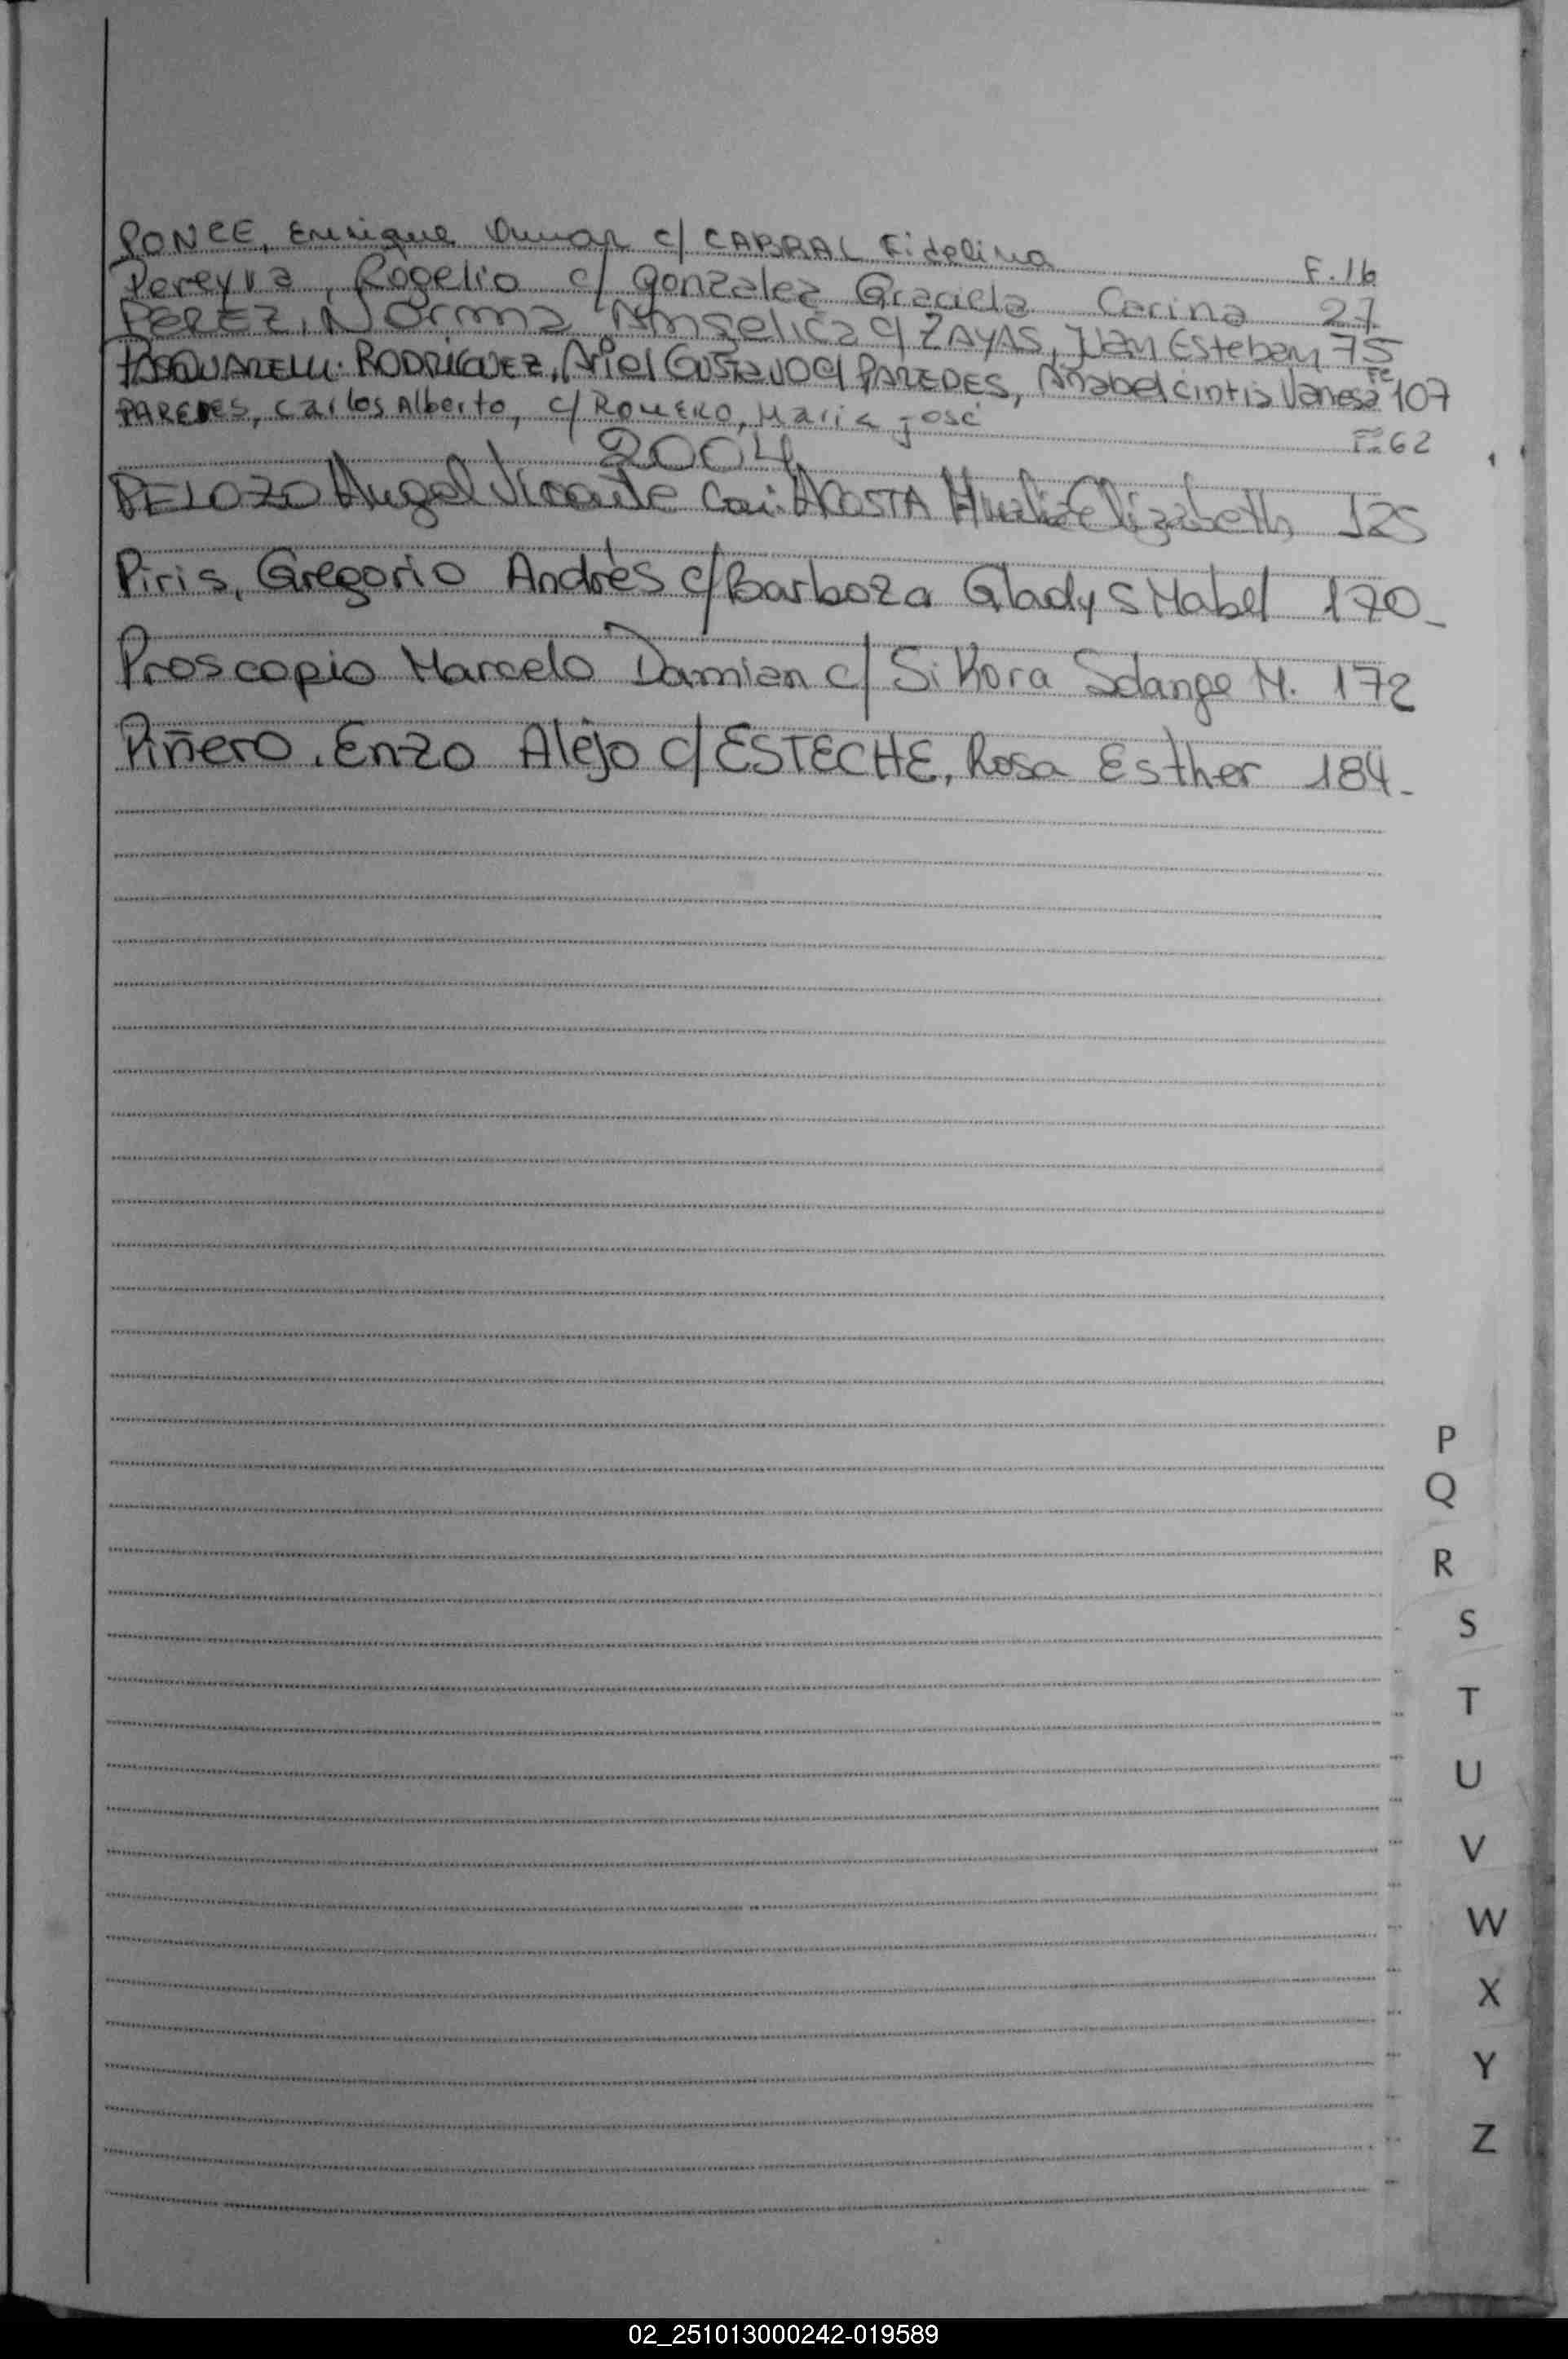 PONCE, Enrique Omar c/ CABRAL Fidelina F.16
Pereyra, Rogelio c/ gonzalez Graciela Carina 27
PEREZ, Norma Angelica c/ ZAYAS, Juan Esteban 75
PASQUARELLI. RODRIGUEZ, Ariel GUSTAVO c/ PAREDES, Anabel cintia Vanesa Fº 107
PAREDES, Carlos Alberto, c/ ROMERO, Maria josé Fº 62
2004
PELOZO Angel Vicente con: ACOSTA Elizabeth 125
Piris, Gregorio Andrés c/ Barboza Gladys Mabel 170_
Proscopio Marcelo Damian c/ Sikora Solange M. 172
Piñero, Enzo Alejo c/ ESTECHE, Rosa Esther 184_
P
Q
R
S
T
U
V
W
X
Y
Z
02_251013000242-019589